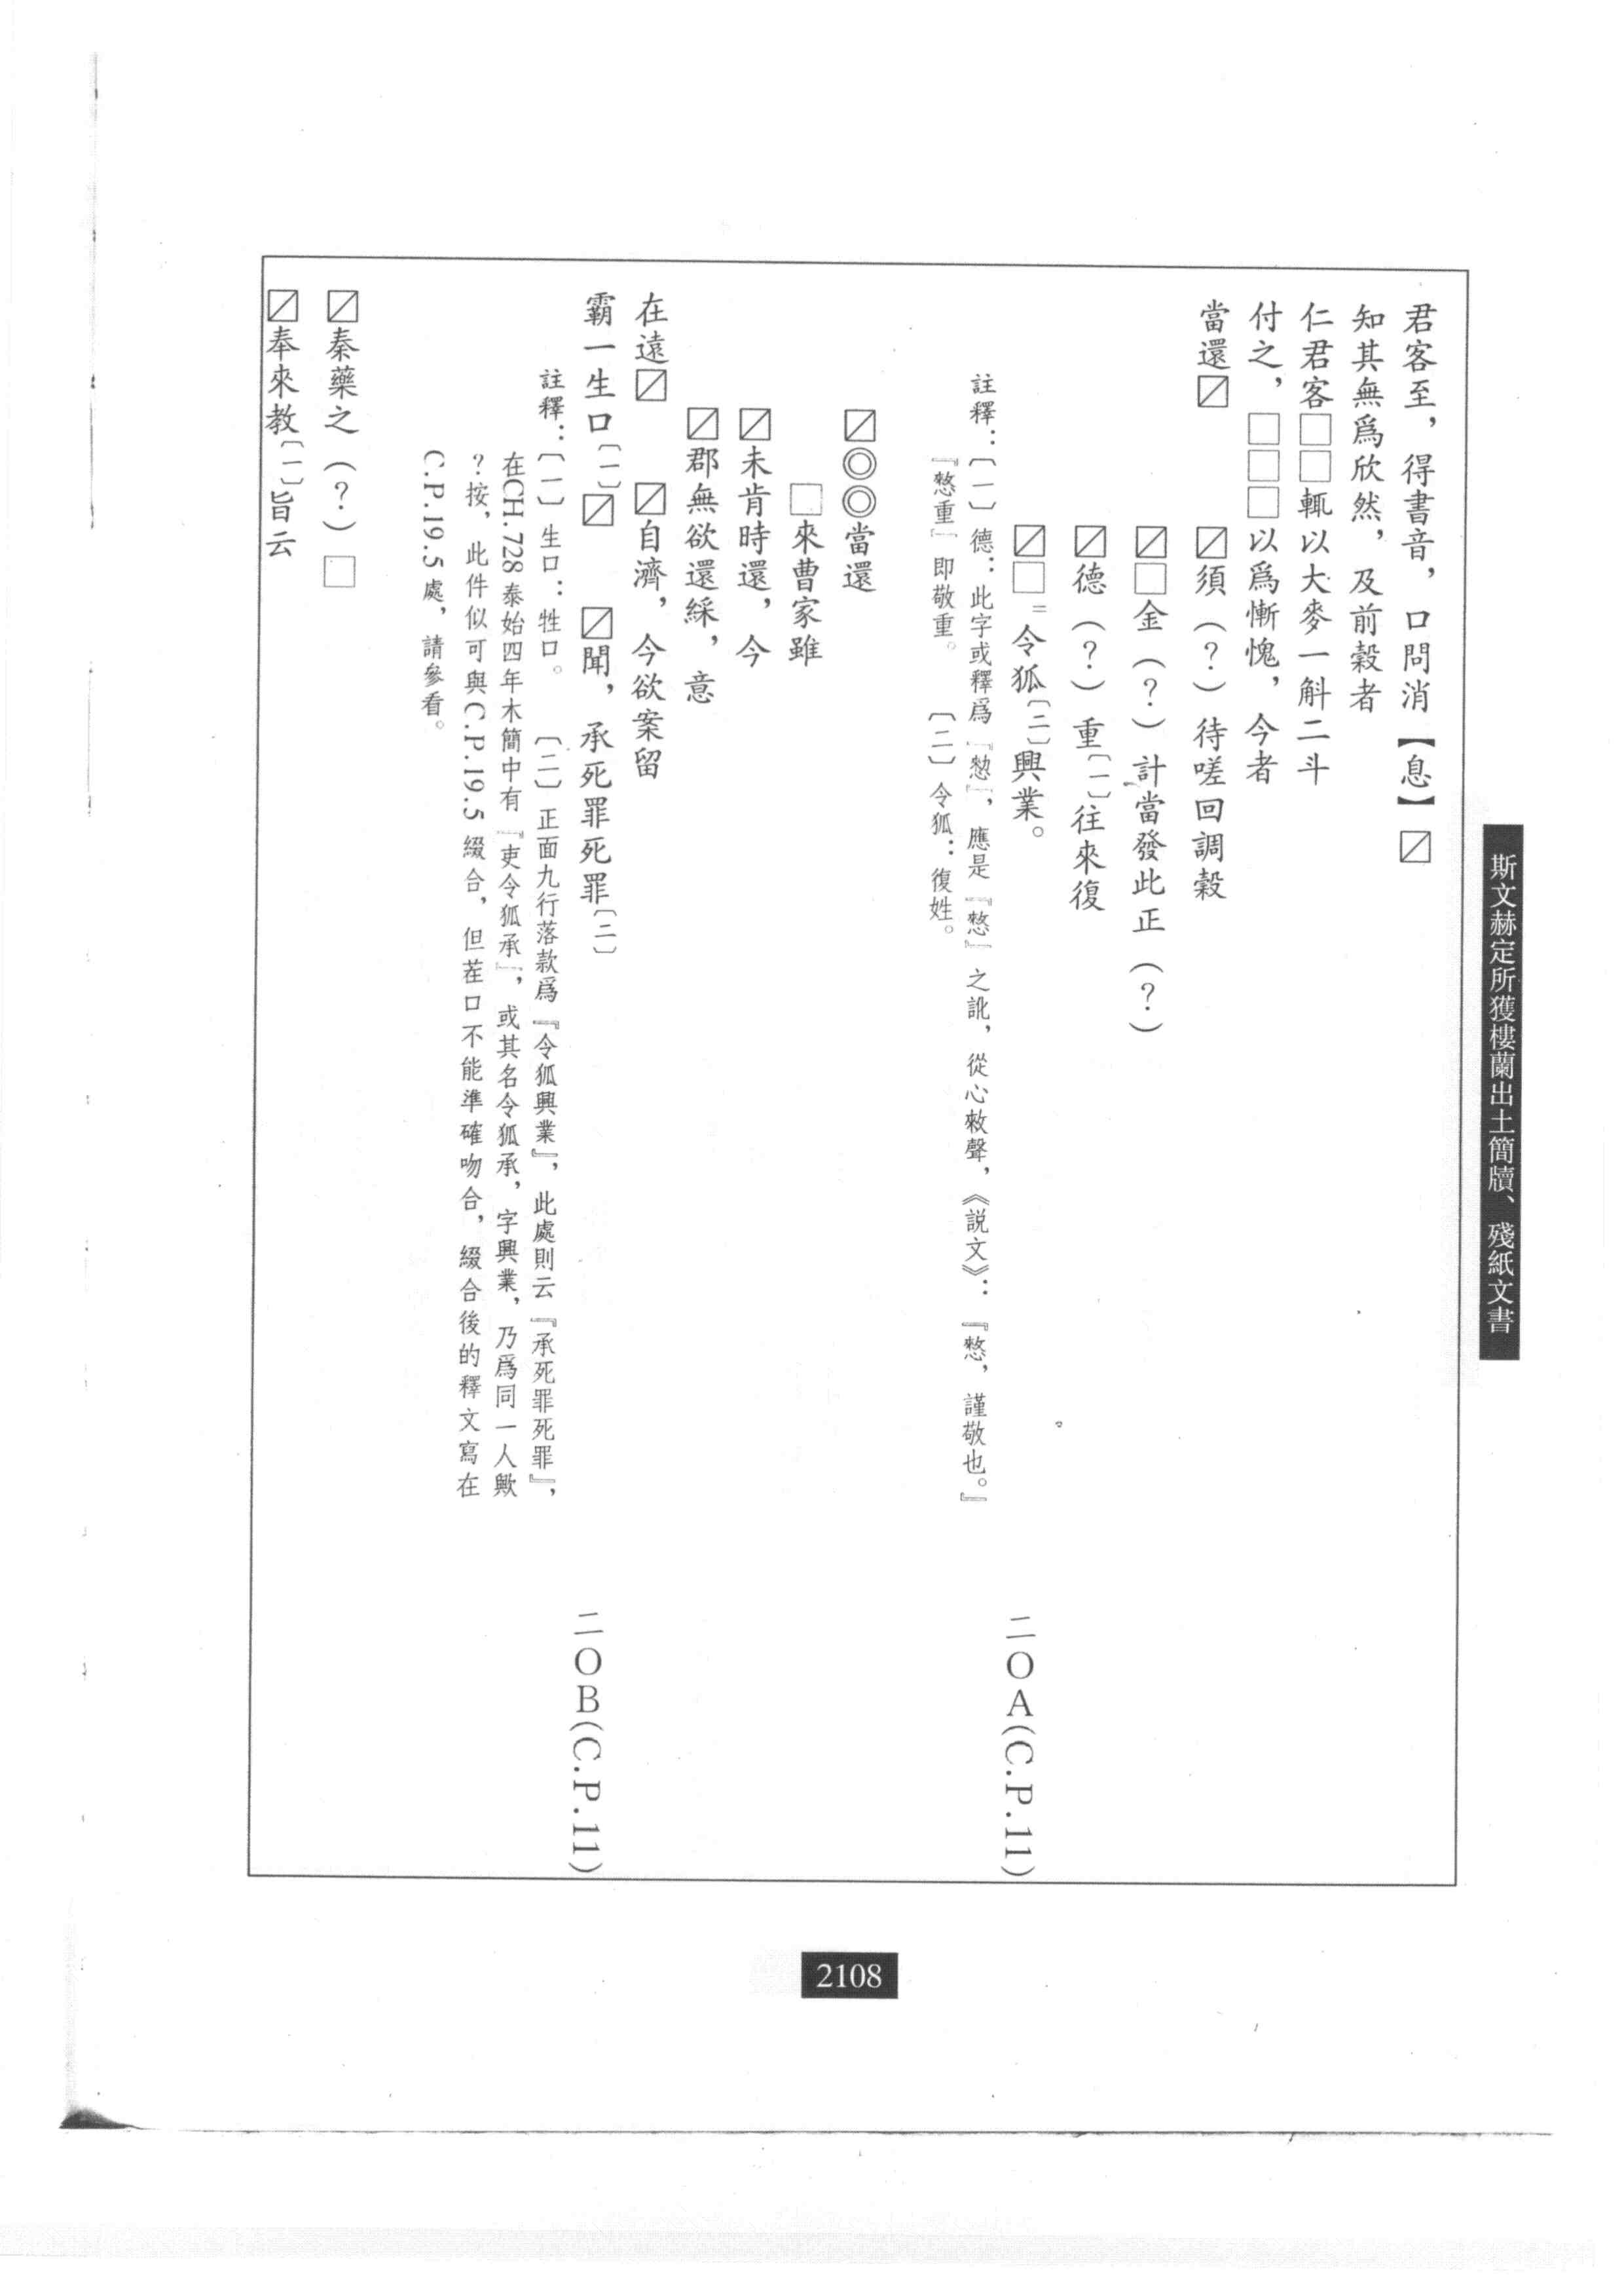 斯文赫定所獲樓蘭出土簡牘、殘紙文書
君客至，得書音，口問消【息】☑
知其無爲欣然，及前穀者
仁君客□□輒以大麥一斛二斗
付之，□□□以爲慚愧，今者
當還☑　☑須（？）待嗟回調穀
☑□金（？）計當發此正（？）
☑德（？）重〔一〕往來復
☑□＝令狐〔二〕興業。
二〇A(C.P.11)
註釋：〔一〕德：此字或釋爲『慗』，應是『憗』之訛，從心敕聲，《説文》：『憗，謹敬也。』
『憗重』即敬重。　〔二〕令狐：復姓。
☑◎◎當還
□來曹家雖
☑未肯時還，今
☑郡無欲還綵，意
在遠☑　☑自濟，今欲案留
霸一生口〔一〕☑　☑聞，承死罪死罪〔二〕
二〇B(C.P.11)
註釋：〔一〕生口：牲口。　〔二〕正面九行落款爲『令狐興業』，此處則云『承死罪死罪』，
在CH.728泰始四年木簡中有『吏令狐承』，或其名令狐承，字興業，乃爲同一人歟
？按，此件似可與C.P.19.5綴合，但茬口不能準確吻合，綴合後的釋文寫在
C.P.19.5處，請參看。
☑秦藥之（？）□
☑奉來教〔一〕旨云
2108